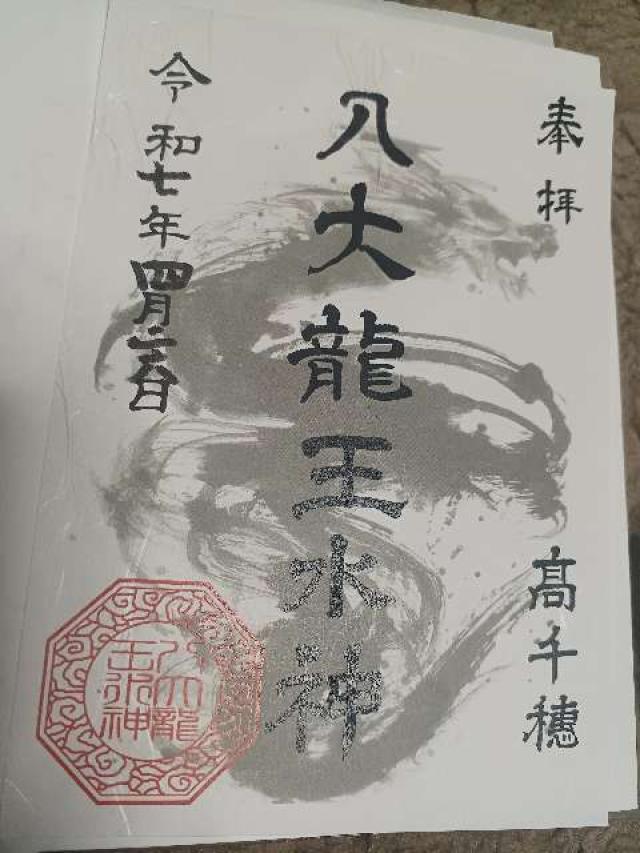 奉拝
高千穂
八大龍王水神
令和七年四月二六日
八大龍
王水神